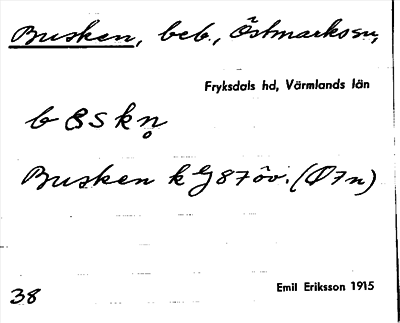 Busken, beb., Östmarks sn,
Fryksdals hd, Värmlands län
Busken k G 87 öv. (Ö 7 n)
38 Emil Eriksson 1915